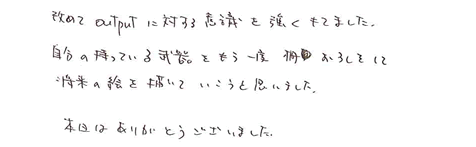 改めて output に対する意識を強くもてました。
自分の持っている武器をもう一度棚おろしをして
将来の絵を描いていこうと思いました。
本日はありがとうございました。